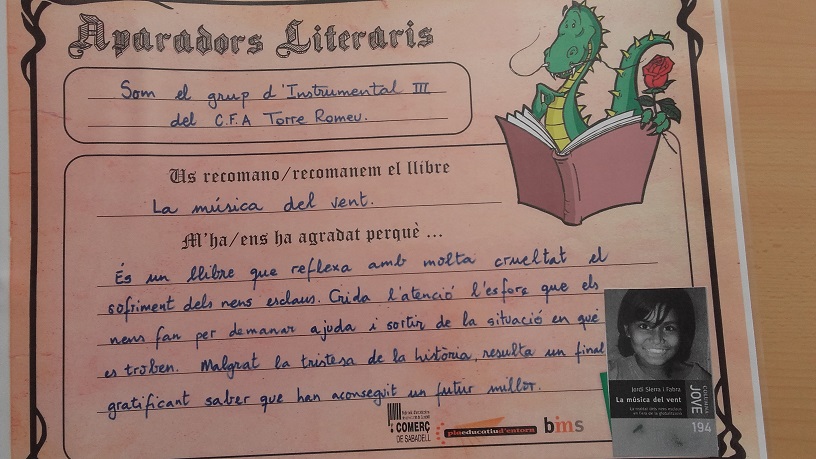 Aparadors Literaris
Som el grup d'Instrumental III
del C.F.A Torre Romeu.
Us recomano/recomanem el llibre
La música del vent.
M'ha/ens ha agradat perquè ...
És un llibre que reflexa amb molta crueltat el
sofriment dels nens esclaus. Crida l'atenció l'esforç que els
nens fan per demanar ajuda i sortir de la situació en què
es troben. Malgrat la tristesa de la història, resulta un final
gratificant saber que han aconseguit un futur millor.
Jordi Sierra i Fabra
La música del vent
COLUMNA
JOVE
194
COMERÇ
DE SABADELL
plaeducatiud'entorn
bms